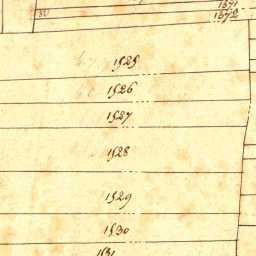 1371
1372
1525
1526
1527
1528
1529
1530
1531